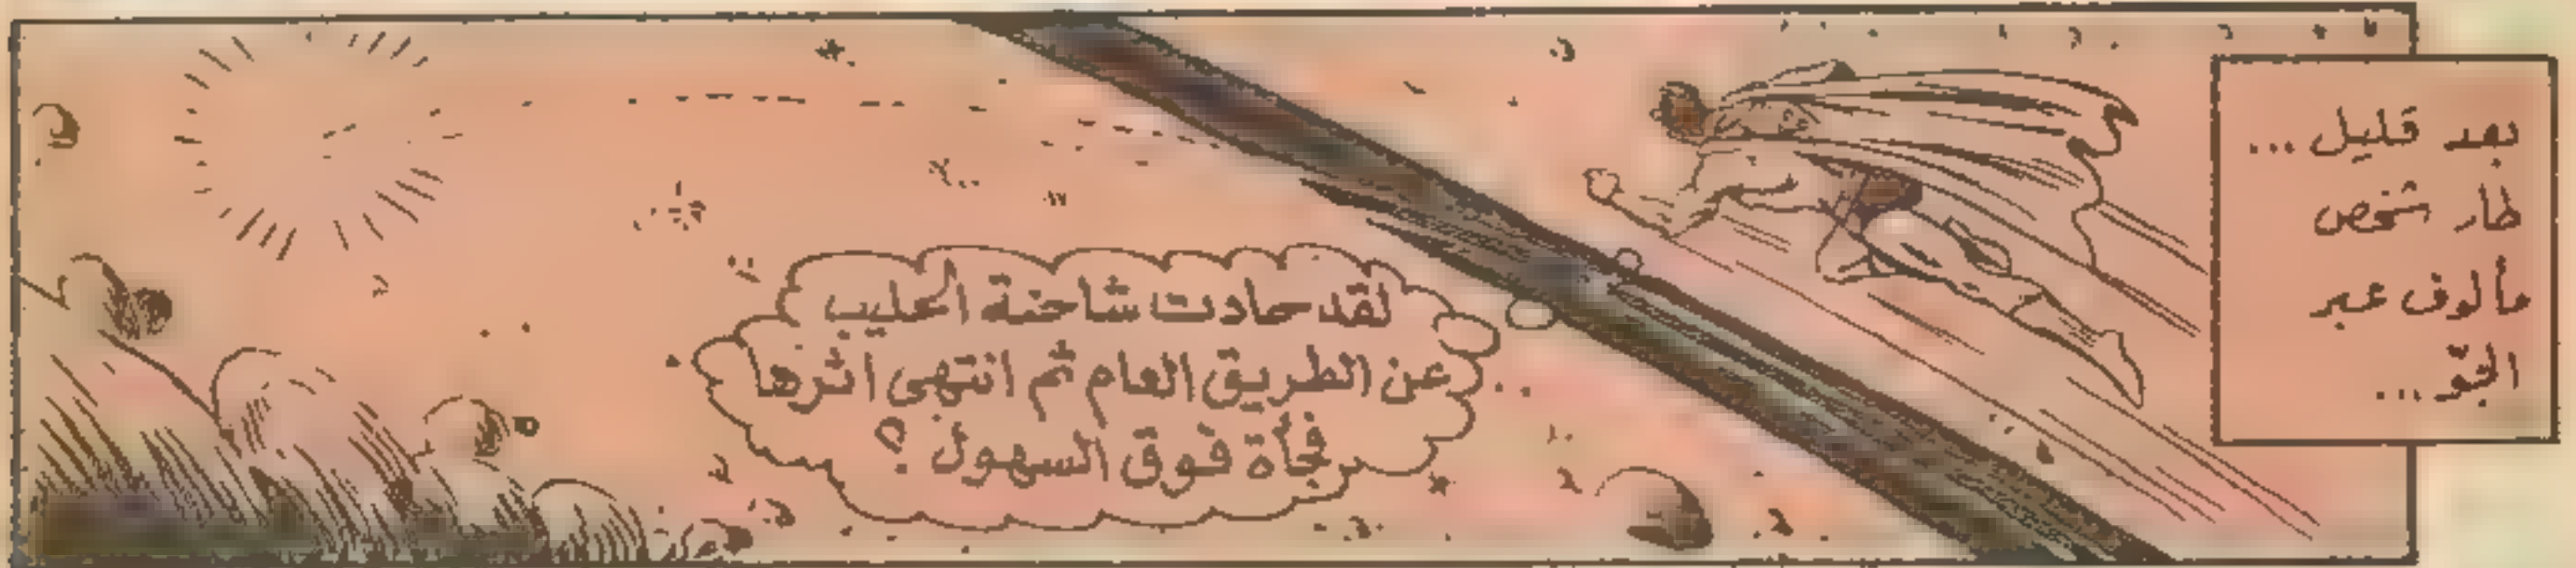 بعد قليل ...
طار شخص
مألوف عبر
الجوّ ...
لقد حادت شاحنة الحليب
عن الطريق العام ثم انتهى اثرها
فجأة فوق السهول ؟